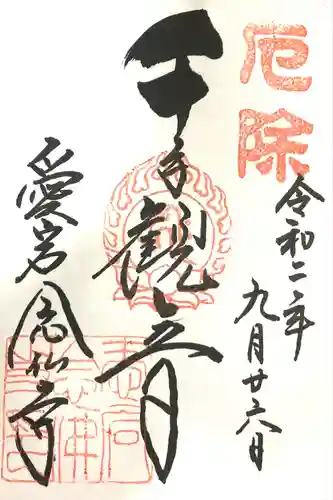 厄除
令和二年
九月廿六日
千手観音
愛宕
念仏寺